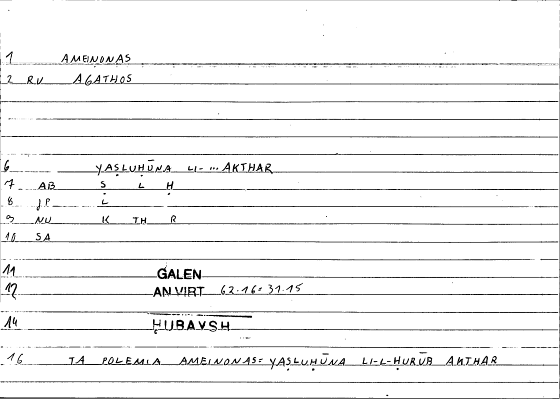 1 AMEINONAS
2 RV AGATHOS
6 YAṢLUḤŪNA LI-...AKTHAR
7 AB Ṣ L Ḥ
8 JP L
9 NU K TH R
10 SA
11 GALEN
12 AN VIRT 62.16=31.15
14 ḤUBAYSH
16 TA POLEMIA AMEINONAS= YAṢLUḤŪNA LI-L-ḤURŪB AKTHAR